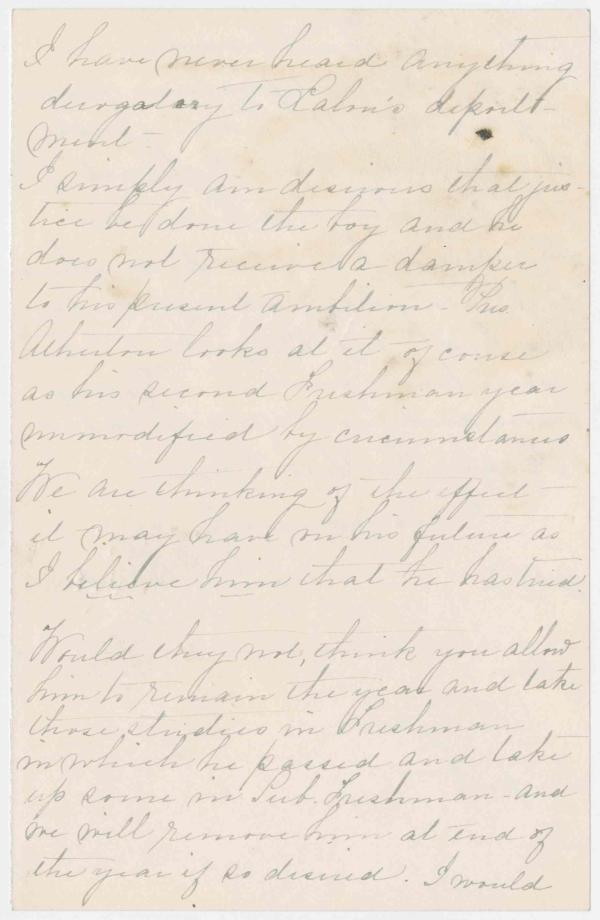 I have never heard anything
derogatory to Calvin's deport-
ment -
I simply am desirous that jus-
tice be done the boy and he
does not receive a damper
to his present ambition - Pres.
Atherton looks at it of course
as his second Freshman year
unmodified by circumstances
We are thinking of the effect -
it may have on his future as
I believe him that he has tried.
Would they not, think you allow
him to remain the year and take
those studies in Freshman
in which he passed and take
up some in Sub. Freshman - and
we will remove him at end of
the year if so desired. I would